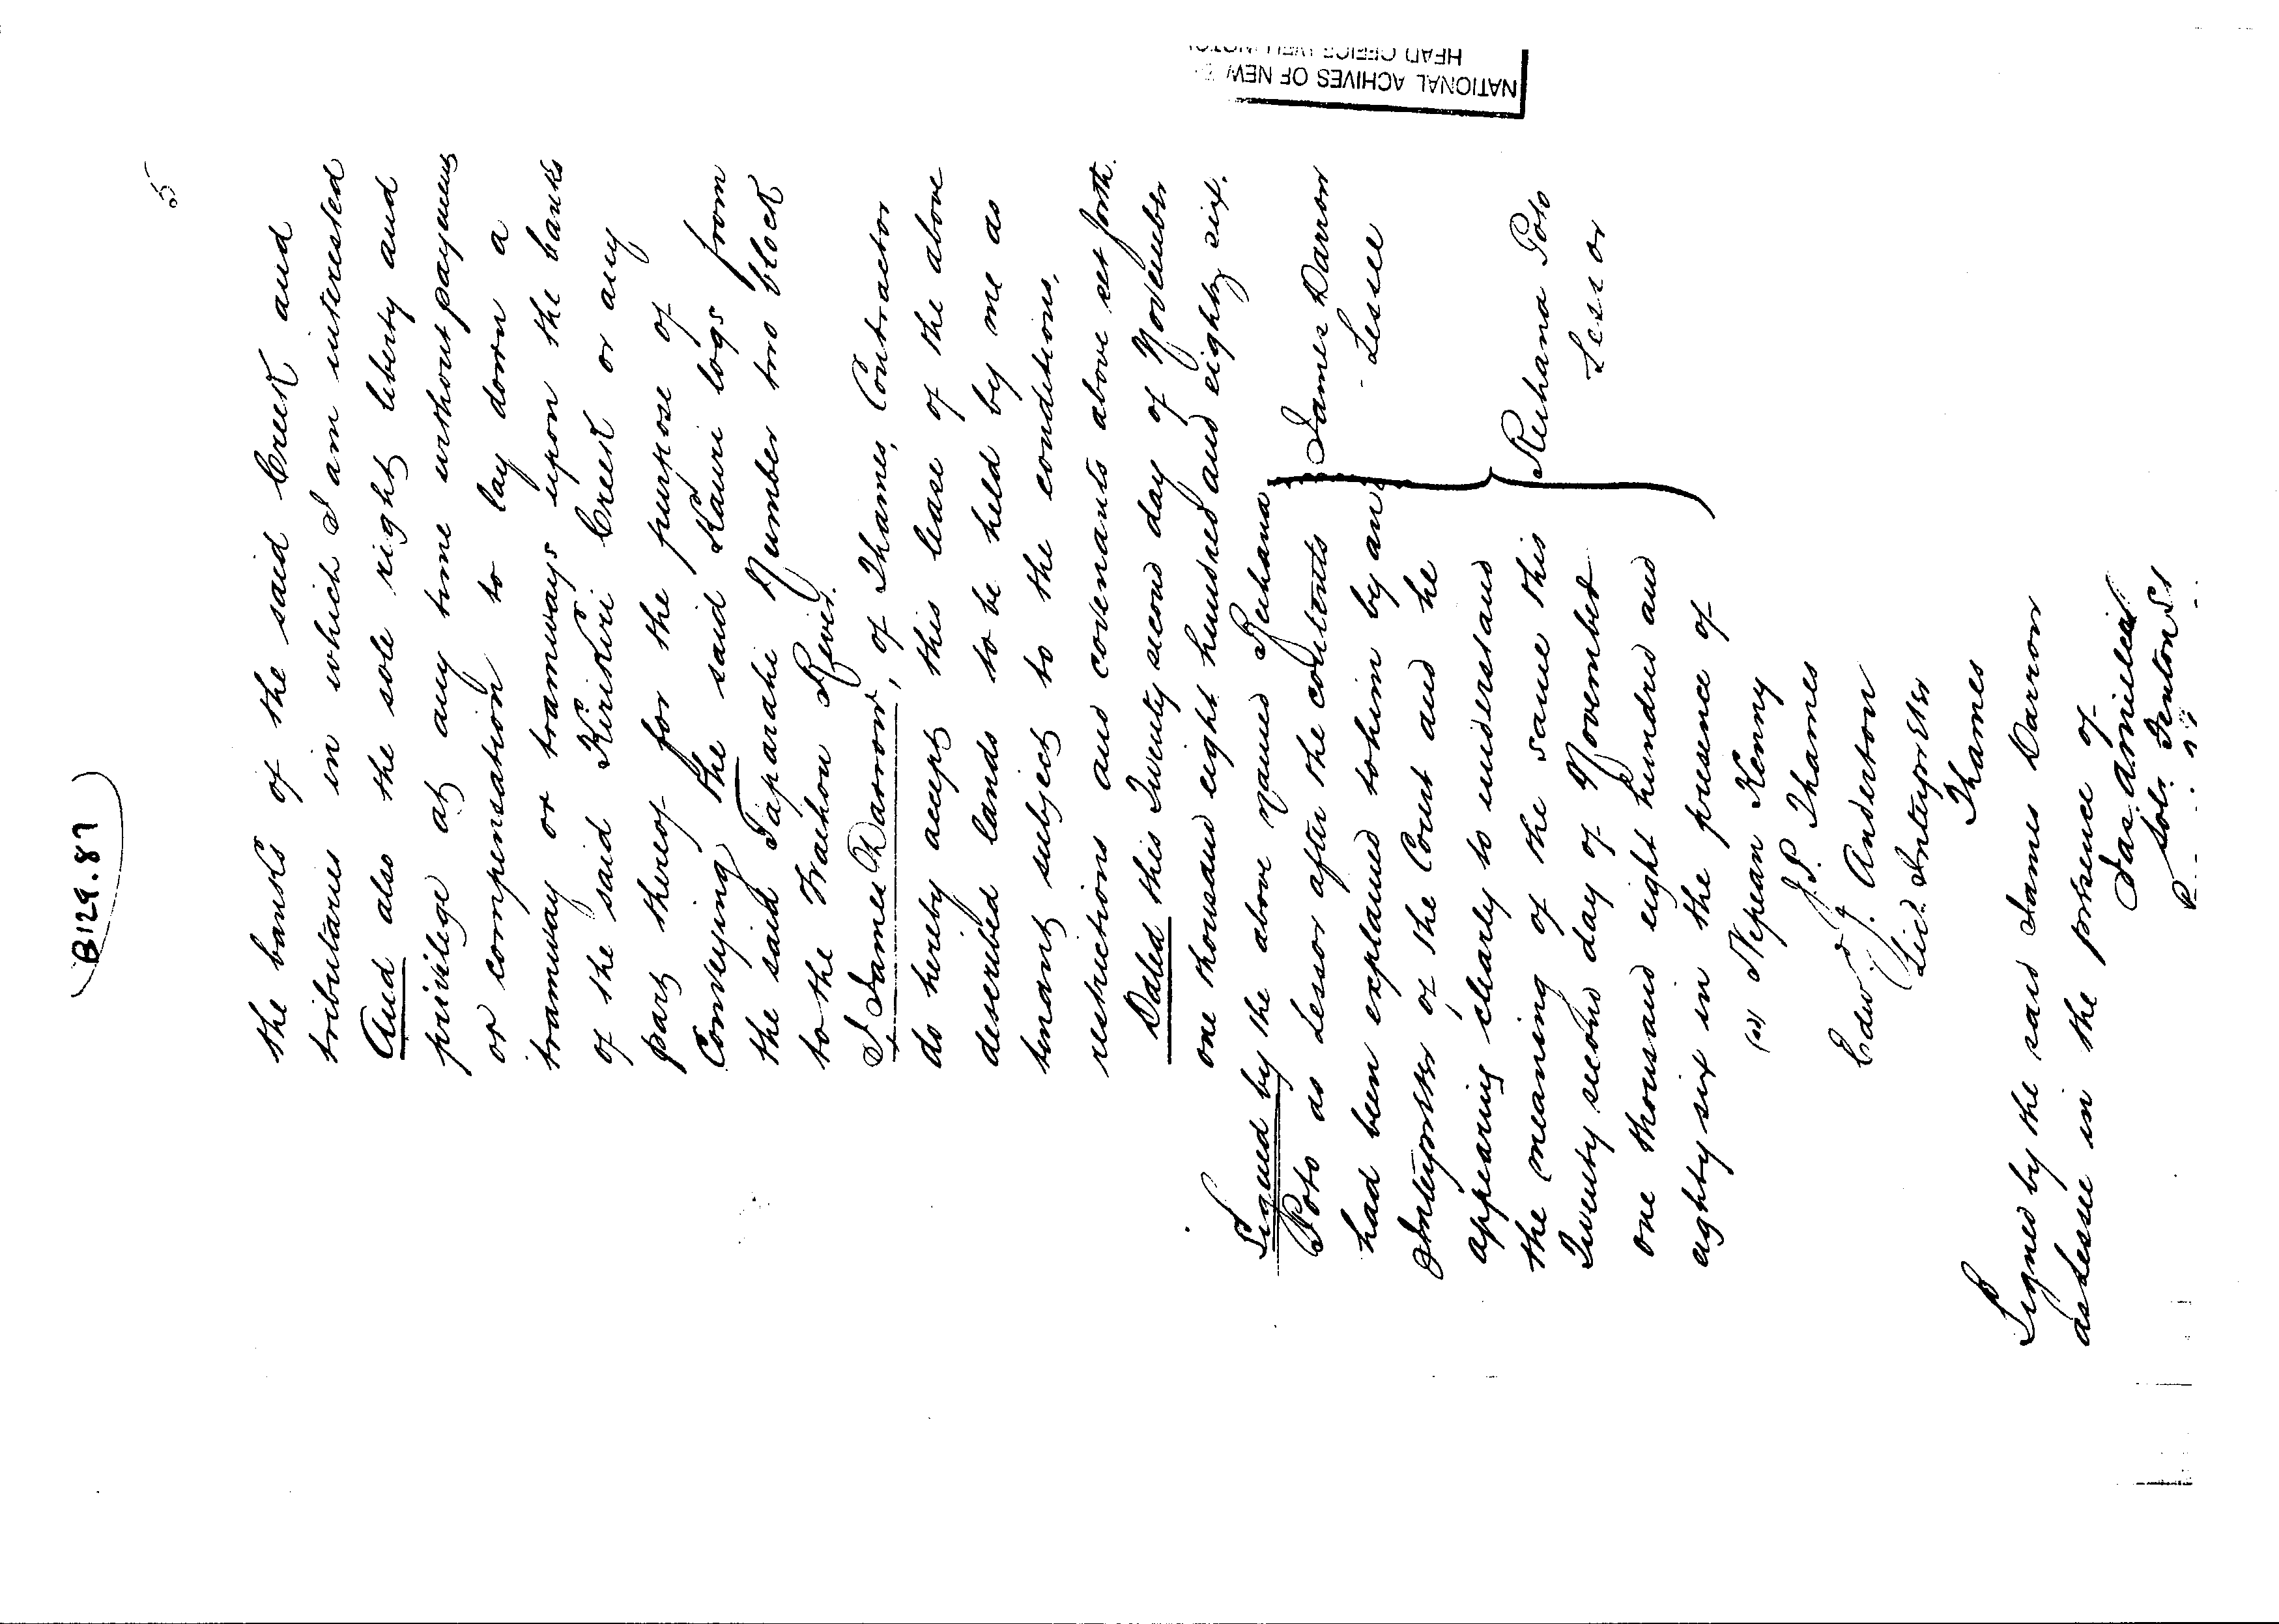 B129.87
5
the banks of the said Creek and
tributaries in which I am interested
And also the sole right liberty and
privilege at any time without payment
or compensation to lay down a
tramway or tramways upon the banks
of the said Kirikiri Creek or any
part thereof for the purpose of
Conveying the said Kauri logs from
the said Taparahi Number two block
to the Waihou River.
I James Darrow, of Thames, Contractor
do hereby accept this lease of the above
described lands to be held by me as
tenant subject to the conditions,
restrictions and covenants above set forth.
Dated this Twenty second day of November
one thousand eight hundred and eighty six.
Signed by the above named Reihana
Poto as Lessor after the contents
had been explained to him by an
Interpreter of the Court and he
appearing clearly to understand
the meaning of the same this
Twenty second day of November
one thousand eight hundred and
eighty six in the presence of
(sd) Nepean Kenny
J.P. Thames
Edwd J. Anderton
Lic. Interpreter
Thames
James Darrow
- Lessee
Reihana Poto
Lessor
Signed by the said James Darrow
as Lessee in the presence of
Jas. A Miller
Solr. Fenton St
NATIONAL ACHIVES OF NEW
HEAD OFFICE WELLINGTON